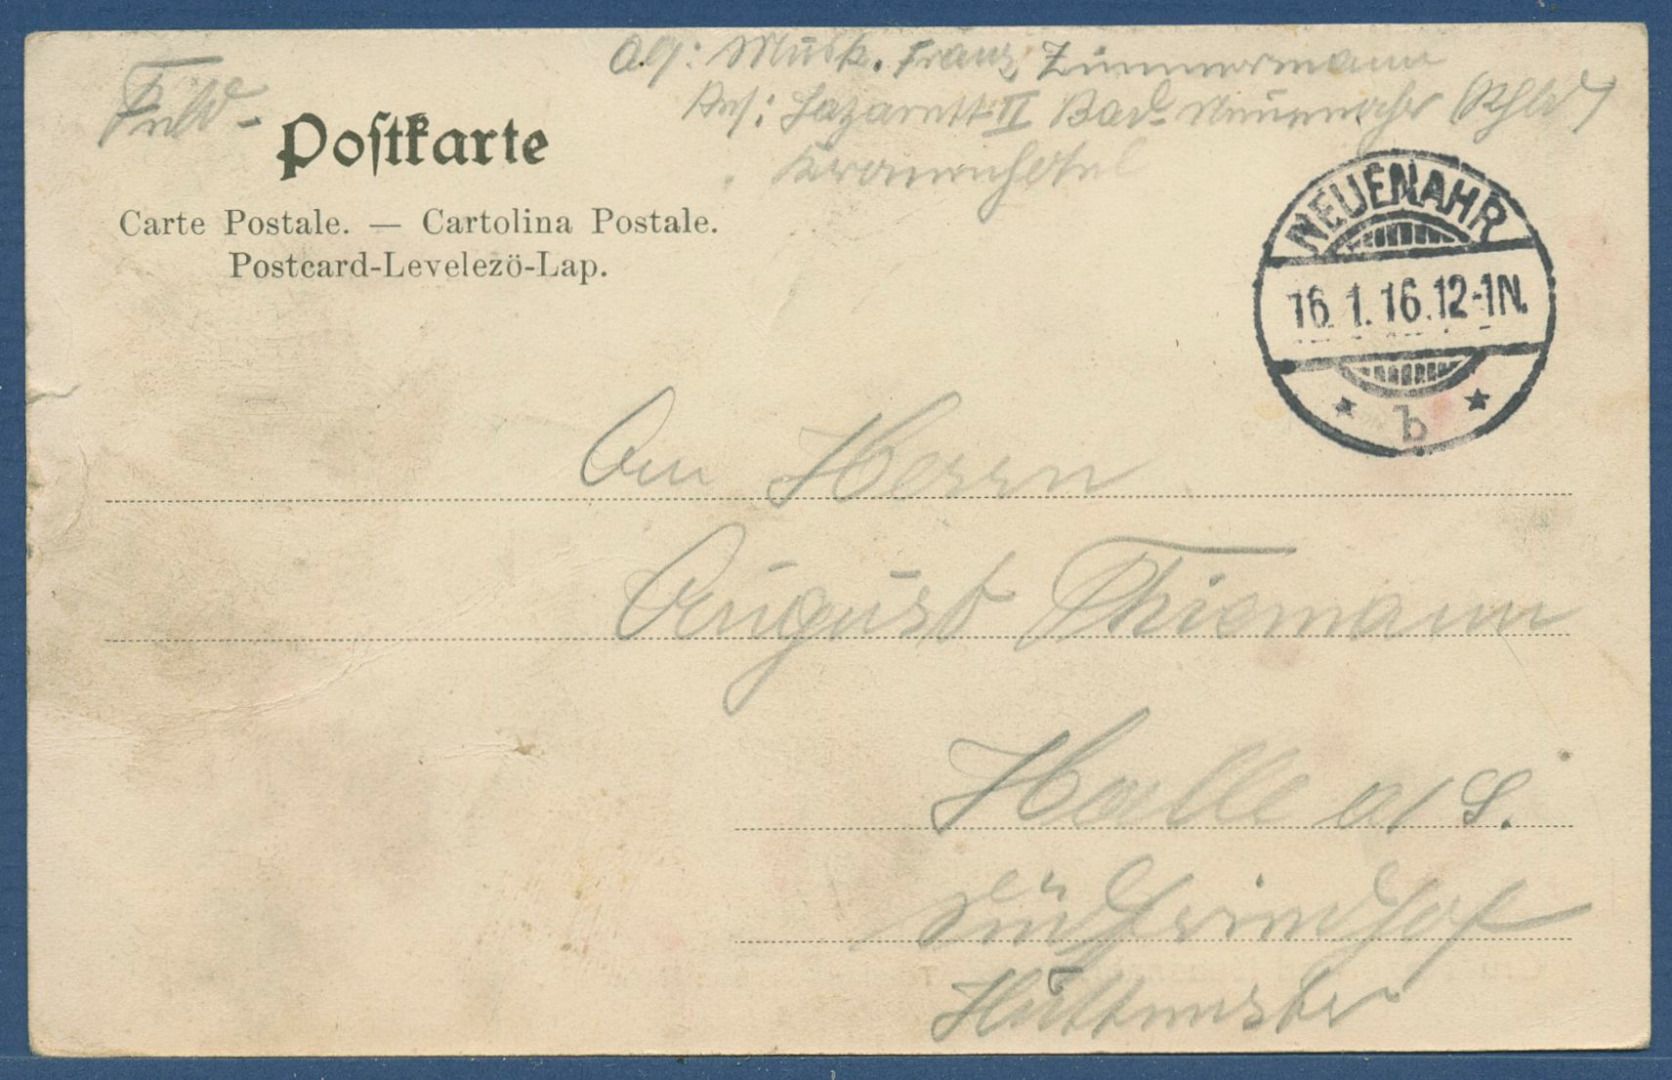 Abs: Musk. Franz Zimmermann
Res: Lazarett II Bad-Neuenahr (Rhld)
Kronenhotel
Feld-
Postkarte
Carte Postale. — Cartolina Postale.
Postcard-Levelezö-Lap.
NEUENAHR
16.1.16.12-1N.
* b *
An Herrn
August Thiemann
Halle a/S.
Südfriedhof
Huttenstr.